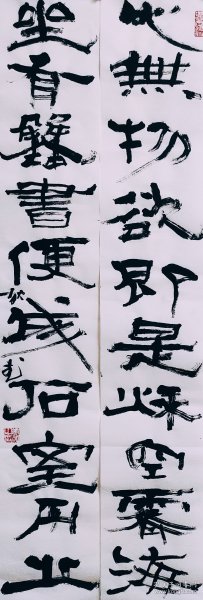 心無物欲即是秋空霽海
坐有琴書便成石室丹丘